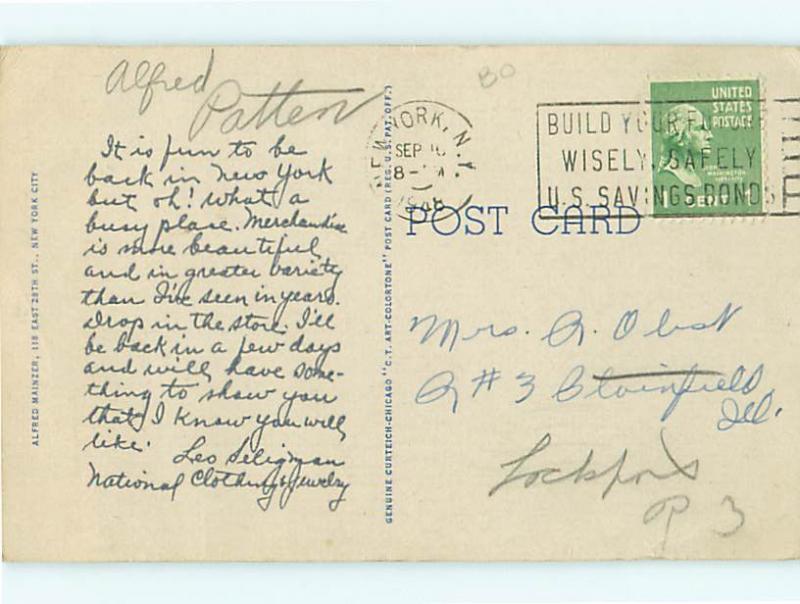 Alfred
Patten
BO
It is fun to be
back in New York
but oh! what a
busy place. Merchandise
is more beautiful
and in greater variety
than I've seen in years.
Drop in the store. I'll
be back in a few days
and will have some-
thing to show you
that I know you will
like.
Leo Seligman
National Clothing & Jewelry
ALFRED MAINZER, 118 EAST 28TH ST., NEW YORK CITY
GENUINE CURTEICH-CHICAGO "C.T. ART-COLORTONE" POST CARD (REG. U.S. PAT. OFF.)
NEW YORK, N.Y.
SEP 10
8-PM
1948
BUILD YOUR FUTURE
WISELY, SAFELY
U.S. SAVINGS BONDS
UNITED
STATES
POSTAGE
WASHINGTON
1 CENT
POST CARD
Mrs. A. Obst
R #3 Plainfield
Ill.
Lockport
R 3